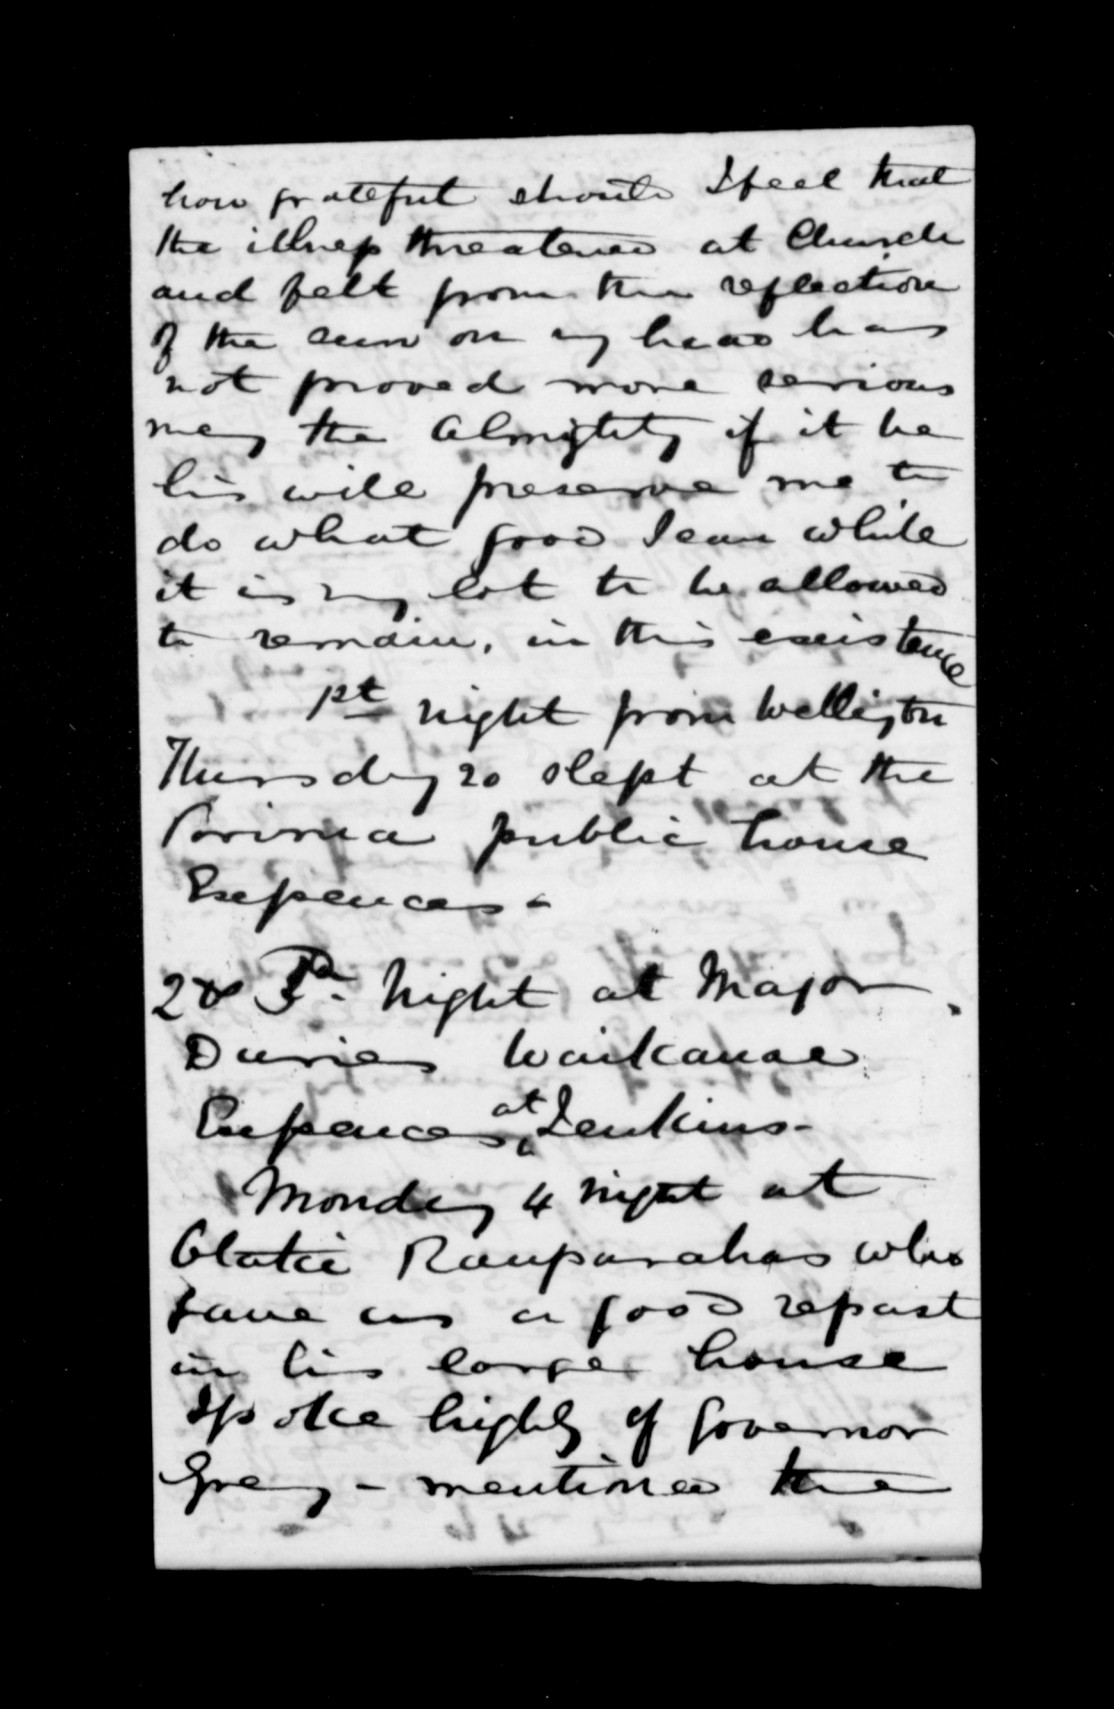 how grateful should I feel that
the illness threatened at Church
and felt from the reflection
of the sun on my head has
not proved more serious
may the Almighty if it be
his will preserve me to
do what good I can while
it is my lot to be allowed
to remain, in this existence
1st night from Wellington
Thursday 20 slept at the
Porirua public house
Expences -
2 & 3d. night at Major
Duries Waikanae
Expences at Jenkins -
Monday 4 night at
Otakie Rauparahas who
gave us a good repast
in his large house
Spoke highly of Governor
Grey - mentioned the